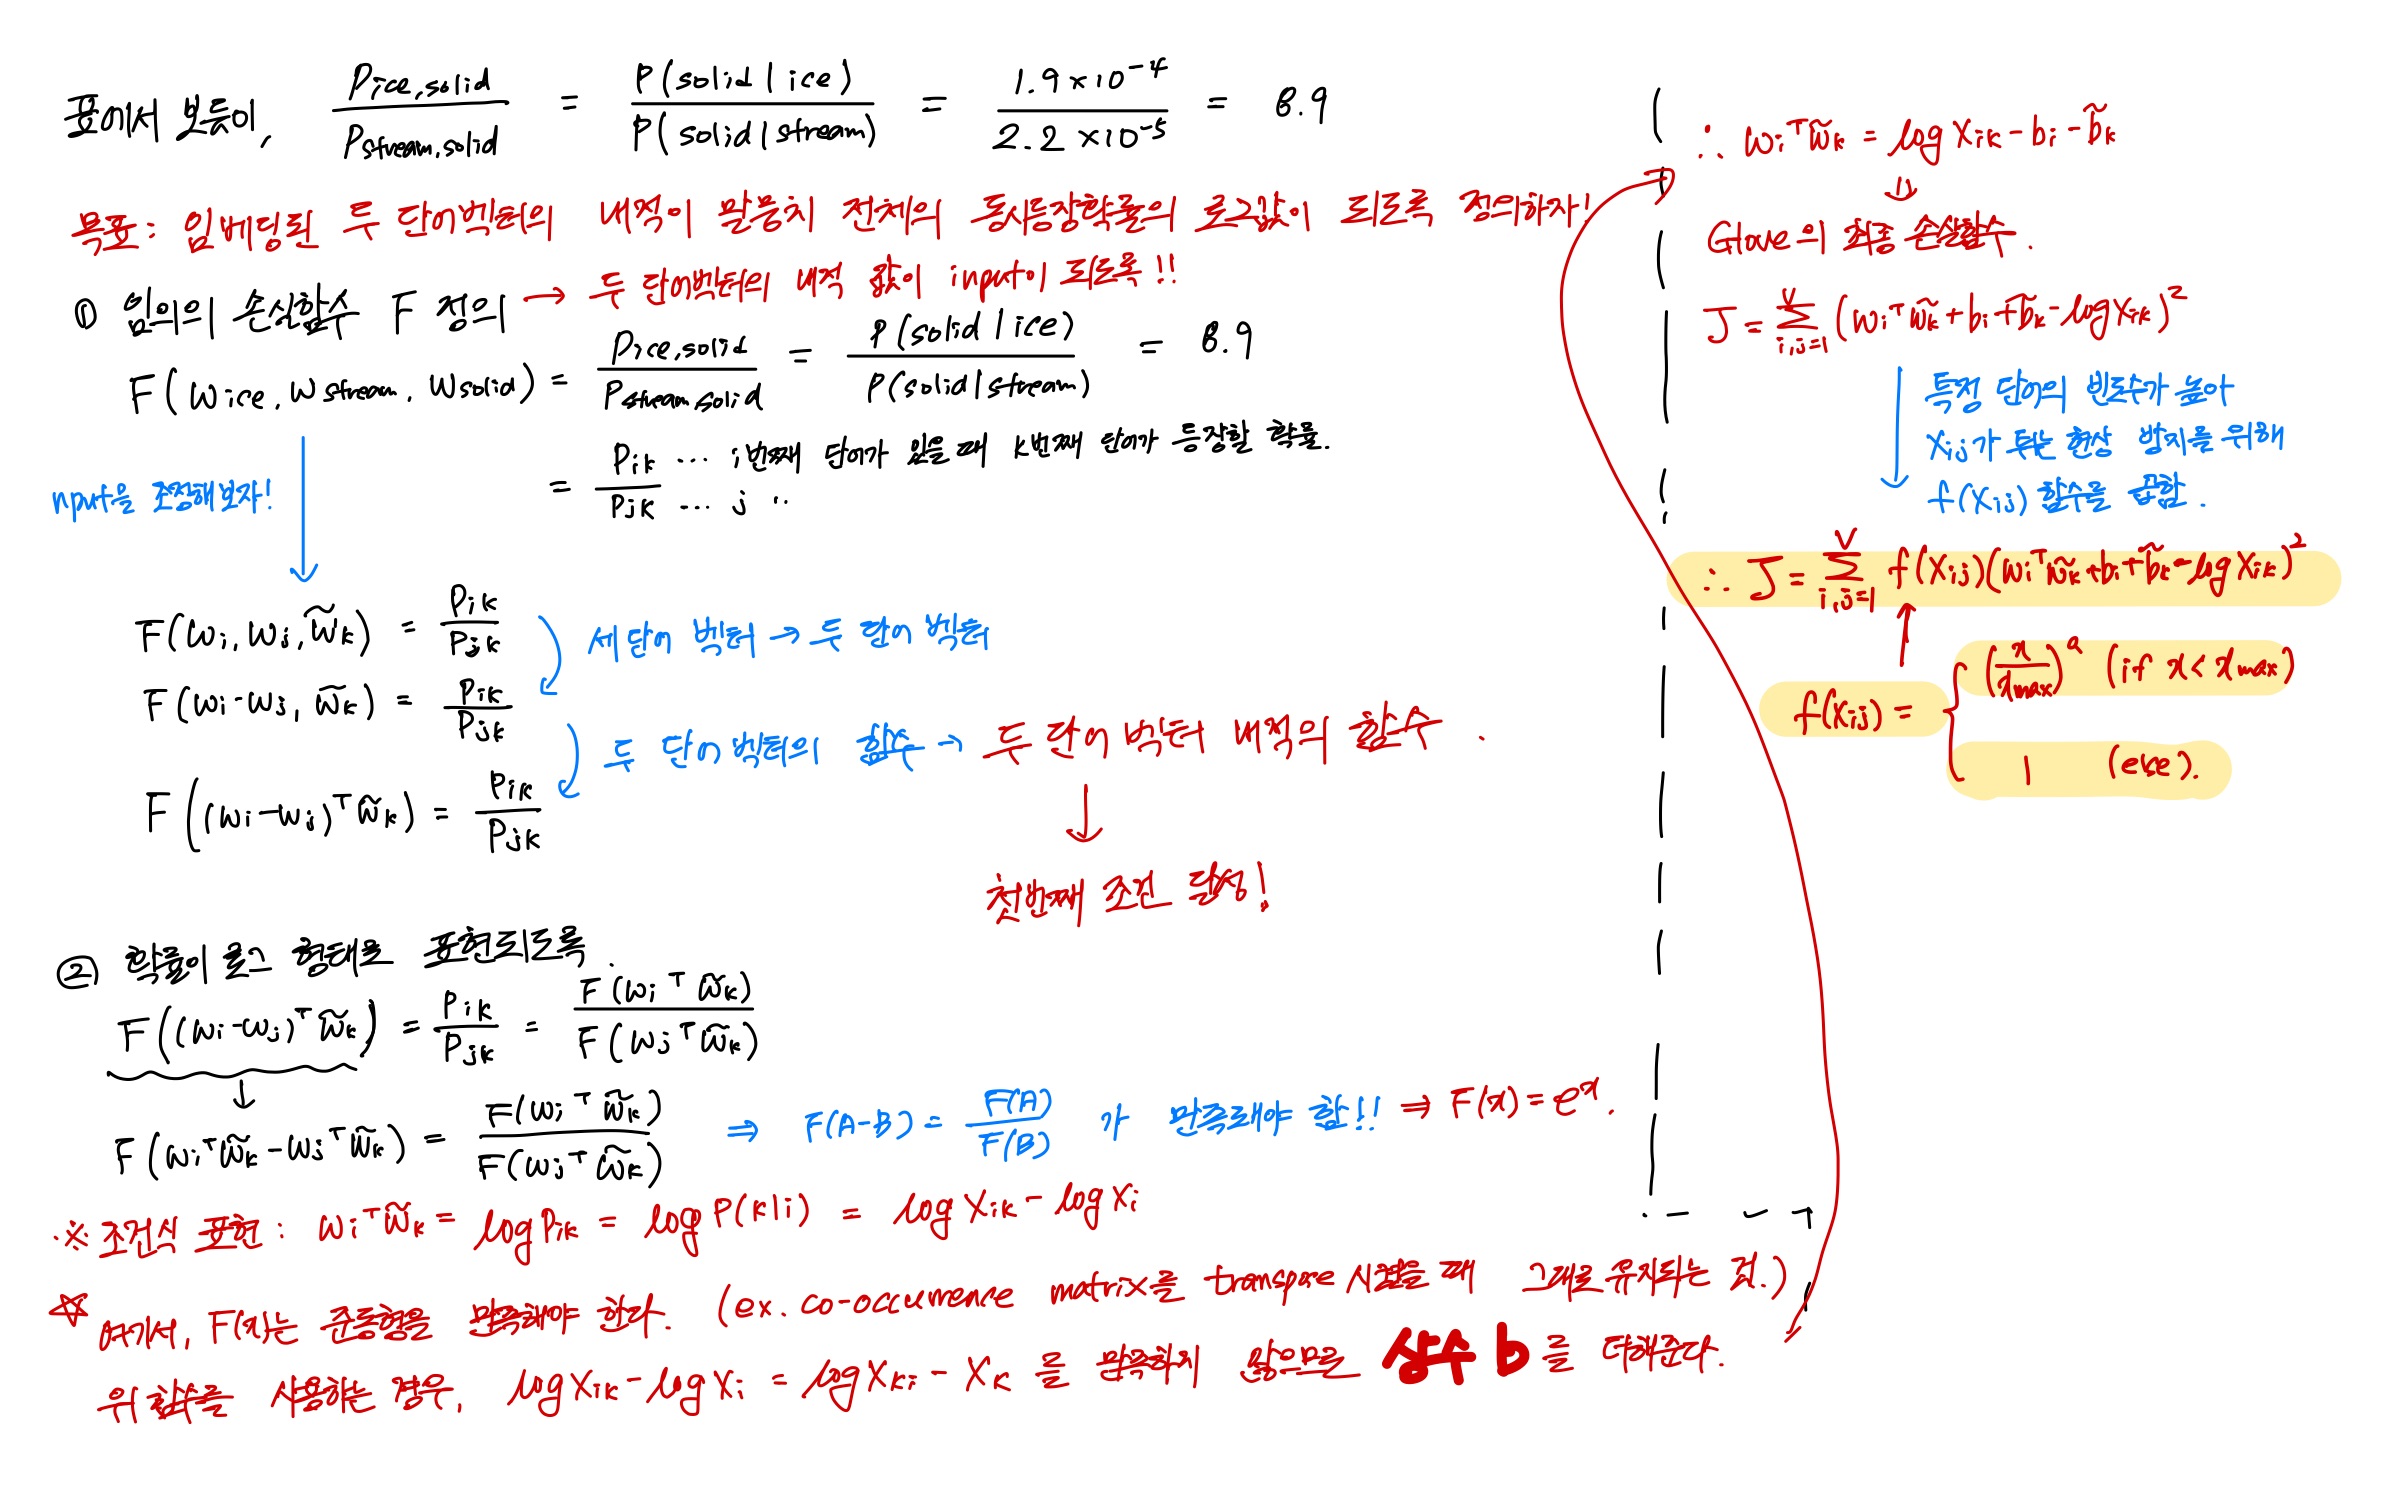 표에서 보듯이, Pice,solid / Pstream,solid = P(solid|ice) / P(solid|stream) = 1.9×10⁻⁴ / 2.2×10⁻⁵ = 8.9
목표: 임베딩된 두 단어벡터의 내적이 말뭉치 전체의 동시등장확률의 로그값이 되도록 정의하자!
① 임의의 손실함수 F 정의 → 두 단어벡터의 내적 값이 input이 되도록!!
F(Wice, Wstream, Wsolid) = Pice,solid / Pstream,solid = P(solid|ice) / P(solid|stream) = 8.9
= Pik ⋯ i번째 단어가 있을 때 k번째 단어가 등장할 확률.
Pjk ⋯ j ‥
nput을 조정해보자!
F(wi, wj, w̃k) = Pik / Pjk
세 단어 벡터 → 두 단어 벡터
F(wi-wj, w̃k) = Pik / Pjk
두 단어 벡터의 함수 → 두 단어 벡터 내적의 함수.
F((wi-wj)ᵀw̃k) = Pik / Pjk
첫번째 조건 달성!
② 확률이 로그 형태로 표현되도록.
F((wi-wj)ᵀw̃k) = Pik / Pjk = F(wiᵀw̃k) / F(wjᵀw̃k)
F(wiᵀw̃k - wjᵀw̃k) = F(wiᵀw̃k) / F(wjᵀw̃k) ⇒ F(A-B) = F(A) / F(B) 가 만족돼야 함!! ⇒ F(x) = eˣ.
※ 조건식 표현: wiᵀw̃k = log Pik = log P(k|i) = log Xik - log Xi
☆ 여기서, F(x)는 준동형을 만족해야 한다. (ex. co-occurrence matrix를 transpose 시켰을 때 그대로 유지되는 것.)
위 함수를 사용하는 경우, log Xik - log Xi = log Xki - Xk 를 만족하지 않으므로 상수 b를 더해준다.
∴ wiᵀw̃k = log Xik - bi - b̃k
⇓
Glove의 최종 손실함수.
J = Σ i,j=1 V (wiᵀw̃k + bi + b̃k - log Xik)²
특정 단어의 빈도수가 높아
Xij가 튀는 현상 방지를 위해
f(Xij) 함수를 곱함.
∴ J = Σ i,j=1 V f(Xij)(wiᵀw̃k + bi + b̃k - log Xik)²
f(Xij) = { (x / xmax)ᵃ (if x < xmax)
1 (else).